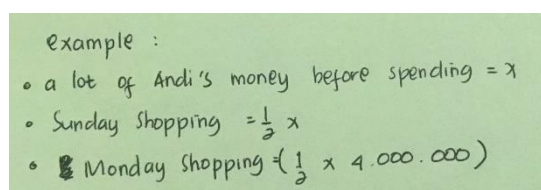 example :
• a lot of Andi's money before spending = x
• Sunday Shopping = 1/2 x
• Monday Shopping = ( 1/2 x 4.000.000 )